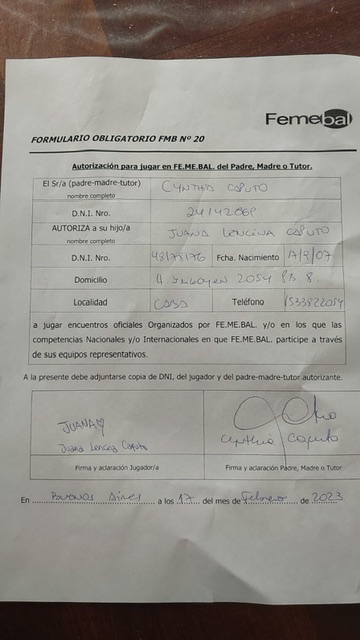 Femebal
FORMULARIO OBLIGATORIO FMB Nº 20
Autorización para jugar en FE.ME.BAL. del Padre, Madre o Tutor.
El Sr/a (padre-madre-tutor) CYNTHIA CAPUTO
nombre completo
D.N.I. Nro.
AUTORIZA a su hijo/a JUANA LENCINA CAPUTO
nombre completo
D.N.I. Nro. 48178176 Fcha. Nacimiento
Domicilio H. YRIGOYEN 2054 PB 8.
Localidad CABA Teléfono 1533822054
a jugar encuentros oficiales Organizados por FE.ME.BAL. y/o en los que las
competencias Nacionales y/o Internacionales en que FE.ME.BAL. participe a través
de sus equipos representativos.
A la presente debe adjuntarse copia de DNI, del jugador y del padre-madre-tutor autorizante.
JUANA
Juana Lencina Caputo Cynthia Caputo
Firma y aclaración Jugador/a Firma y aclaración Padre, Madre o Tutor
En Buenos Aires a los 17 del mes de Febrero de 2023